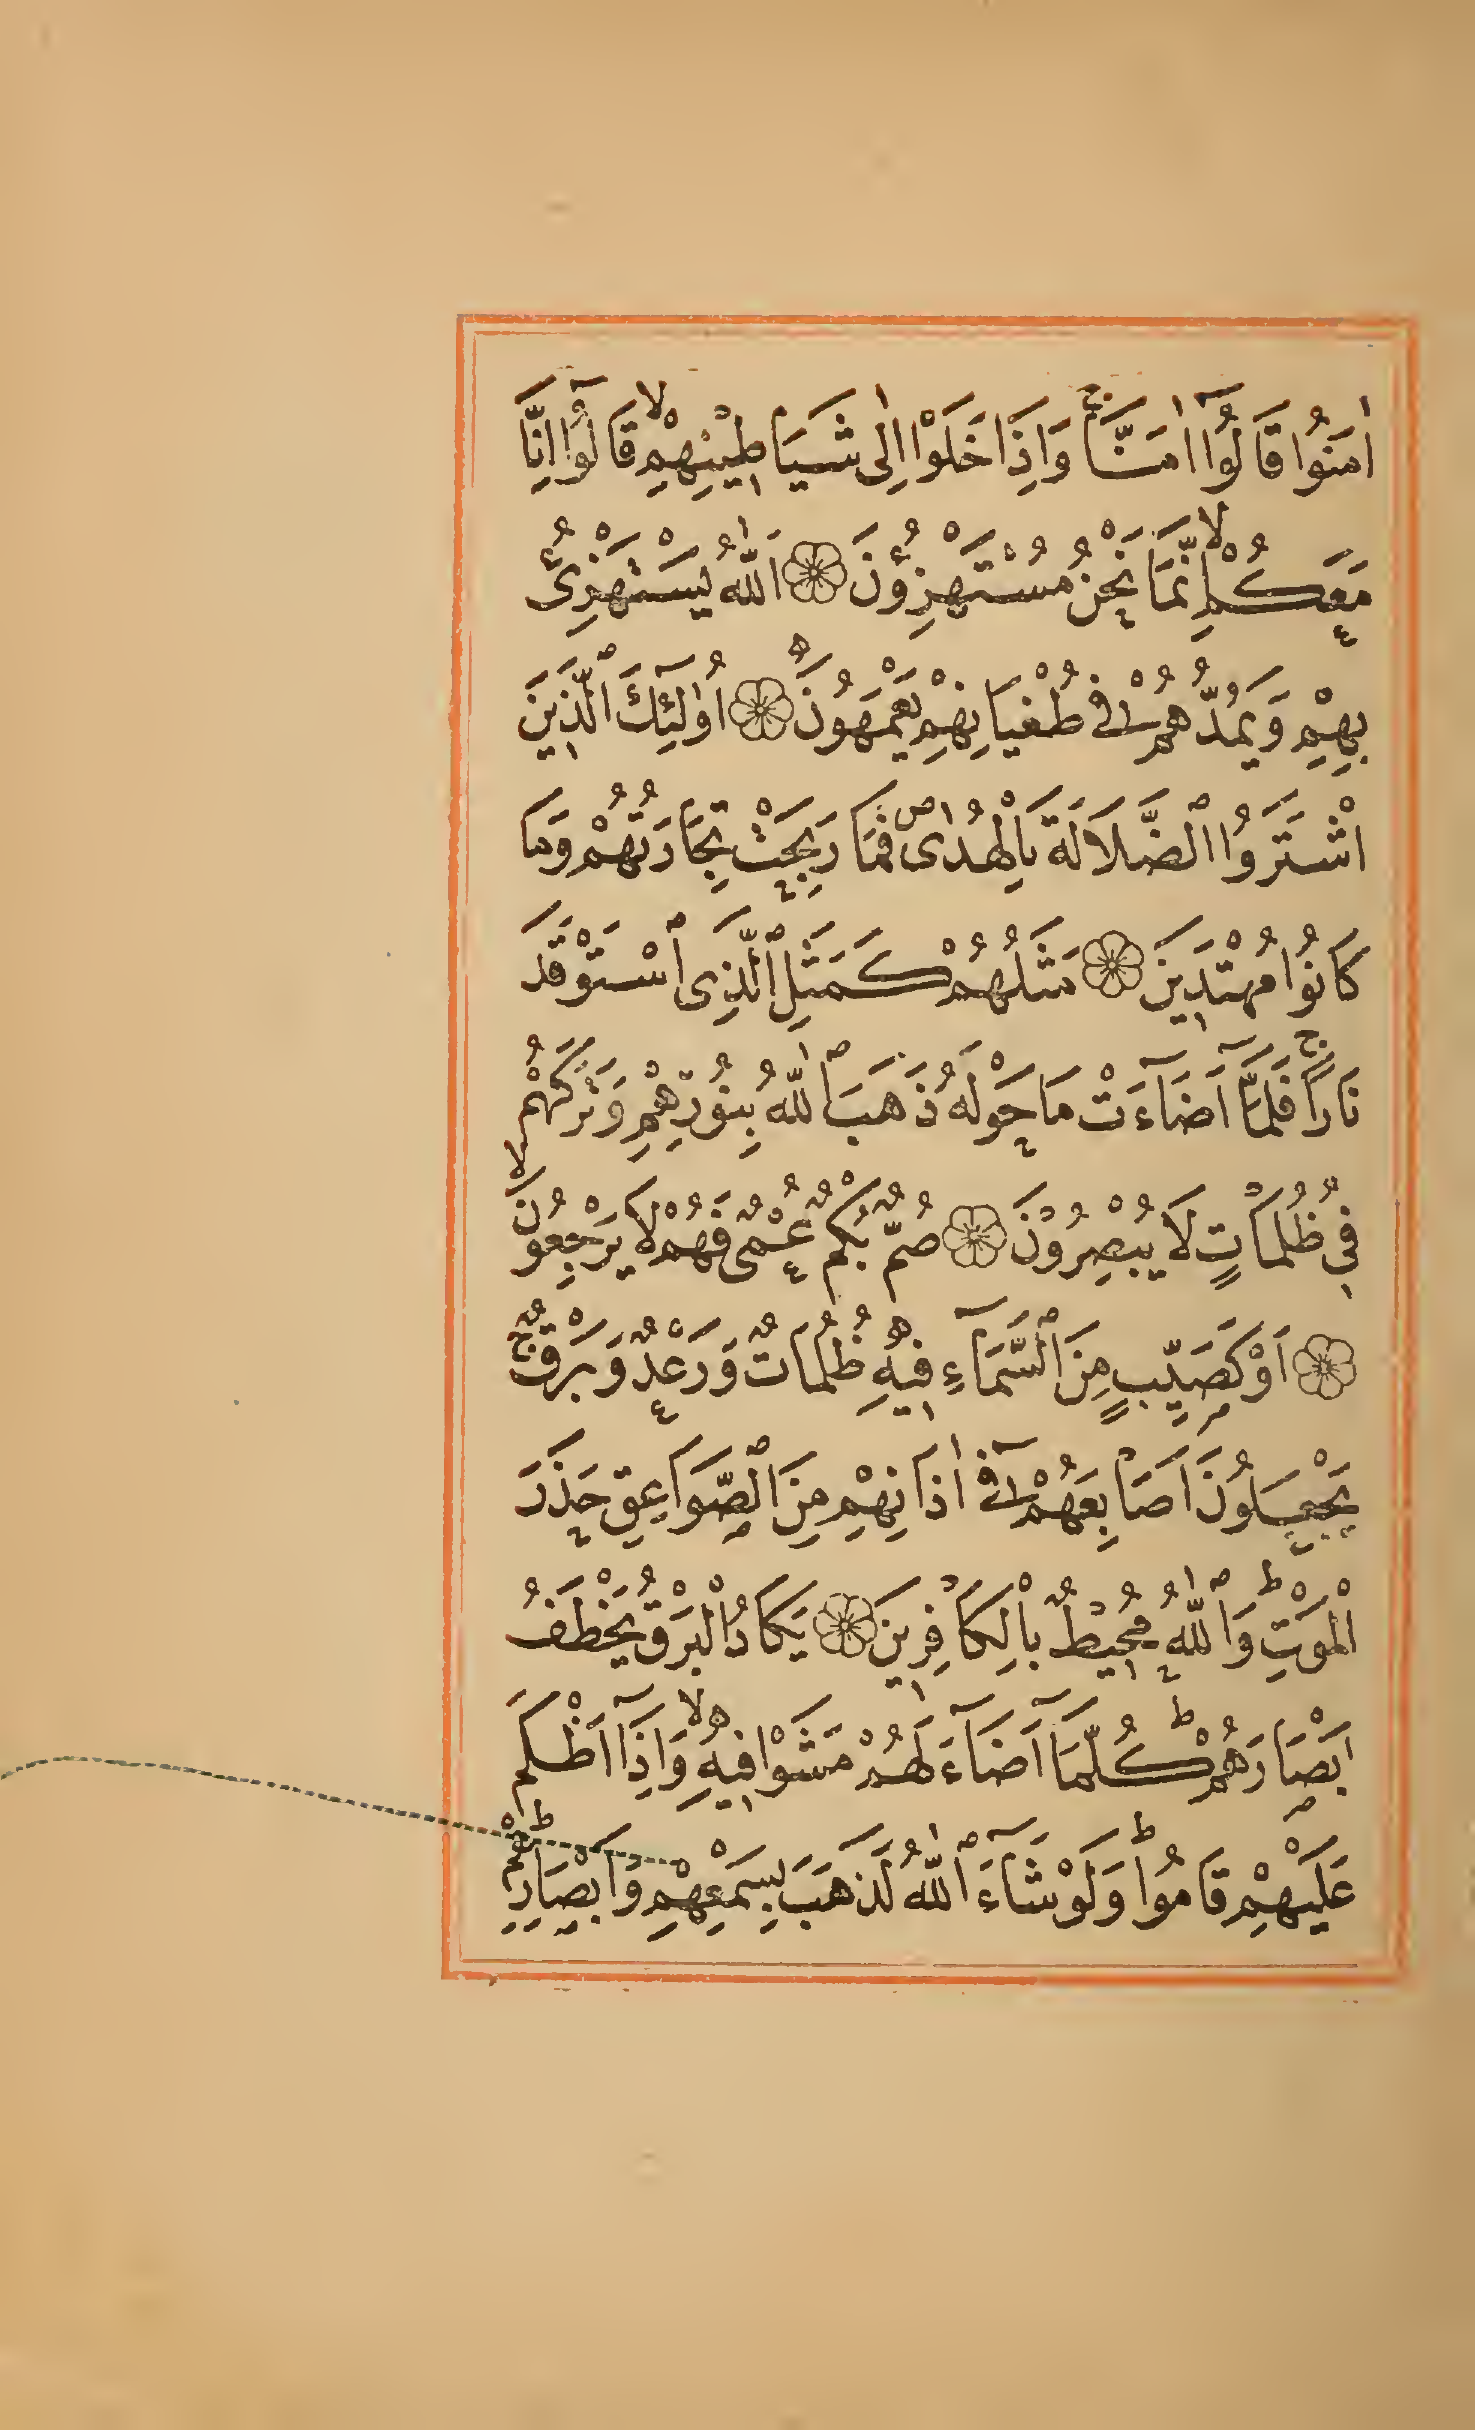 اٰمَنُوا قَالُٓوا اٰمَنَّاۚ وَاِذَا خَلَوْا اِلٰى شَيَاطِينِهِمْۙ قَالُٓوا اِنَّا
مَعَكُمْۙ اِنَّمَا نَحْنُ مُسْتَهْزِؤُنَ ۞ اَللّٰهُ يَسْتَهْزِئُ
بِهِمْ وَيَمُدُّهُمْ فِى طُغْيَانِهِمْ يَعْمَهُونَ ۞ اُو۬لٰٓئِكَ الَّذِينَ
اشْتَرَوُا الضَّلَالَةَ بِالْهُدٰىۖ فَمَا رَبِحَتْ تِجَارَتُهُمْ وَمَا
كَانُوا مُهْتَدِينَ ۞ مَثَلُهُمْ كَمَثَلِ الَّذِى اسْتَوْقَدَ
نَارًاۚ فَلَمَّٓا اَضَٓاءَتْ مَا حَوْلَهُ ذَهَبَ اللّٰهُ بِنُورِهِمْ وَتَرَكَهُمْ
فِى ظُلُمَاتٍ لَا يُبْصِرُونَ ۞ صُمٌّ بُكْمٌ عُمْىٌ فَهُمْ لَا يَرْجِعُونَۙ
۞ اَوْ كَصَيِّبٍ مِنَ السَّمَٓاءِ فِيهِ ظُلُمَاتٌ وَرَعْدٌ وَبَرْقٌۚ
يَجْعَلُونَ اَصَابِعَهُمْ فِٓى اٰذَانِهِمْ مِنَ الصَّوَاعِقِ حَذَرَ
الْمَوْتِۜ وَاللّٰهُ مُحِيطٌ بِالْكَافِرِينَ ۞ يَكَادُ الْبَرْقُ يَخْطَفُ
اَبْصَارَهُمْۜ كُلَّمَٓا اَضَٓاءَ لَهُمْ مَشَوْا فِيهِۙ وَاِذَٓا اَظْلَمَ
عَلَيْهِمْ قَامُواۜ وَلَوْ شَٓاءَ اللّٰهُ لَذَهَبَ بِسَمْعِهِمْ وَاَبْصَارِهِمْۜ